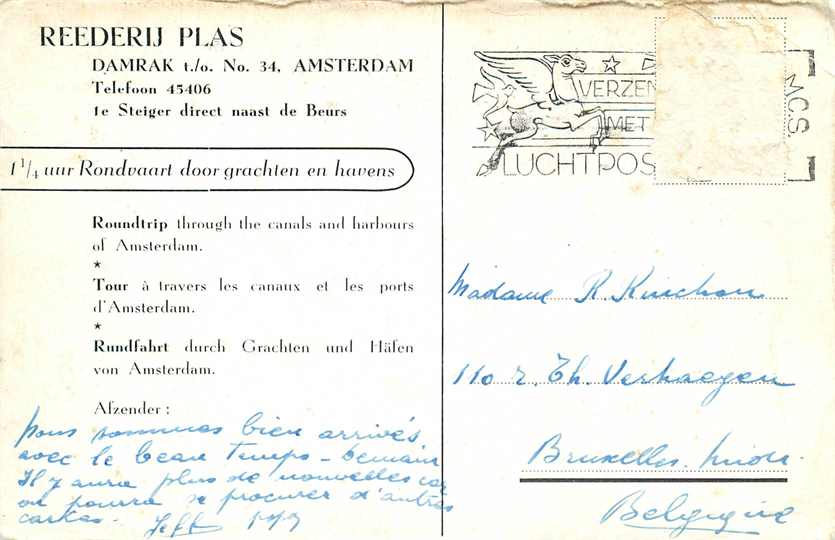 REEDERIJ PLAS
DAMRAK t./o. No. 34, AMSTERDAM
Telefoon 45406
1e Steiger direct naast de Beurs
1 1/4 uur Rondvaart door grachten en havens
Roundtrip through the canals and harbours
of Amsterdam.
*
Tour à travers les canaux et les ports
d'Amsterdam.
*
Rundfahrt durch Grachten und Häfen
von Amsterdam.
Afzender :
Nous sommes bien arrivés
avec le beau temps - Demain
Il y aura plus de nouvelles car
on pourra se procurer d'autres
cartes. Jeff
VERZEN
MET
LUCHTPOS
MCS
Madame R. Kinchon
110 r. Th. Verhaegen
Bruxelles. Midi.
Belgique